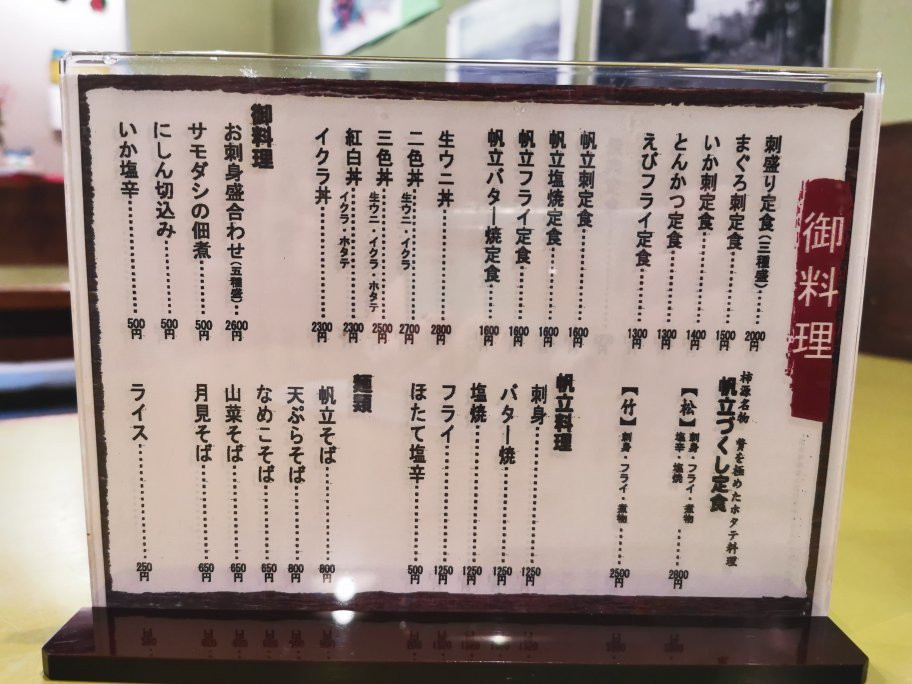 御料理
刺盛り定食(三種盛)…2000円
まぐろ刺定食…1500円
いか刺定食…1400円
とんかつ定食…1300円
えびフライ定食…1300円
帆立刺定食…1600円
帆立塩焼定食…1600円
帆立フライ定食…1600円
帆立バター焼定食…1600円
生ウニ丼…2800円
二色丼 生ウニ・イクラ…2700円
三色丼 生ウニ・イクラ・ホタテ 2500円
紅白丼 イクラ・ホタテ…2300円
イクラ丼…2300円
御料理
お刺身盛合わせ(五種盛)…2600円
サモダシの佃煮…500円
にしん切込み…500円
いか塩辛…500円
柿源名物 贅を極めたホタテ料理
帆立づくし定食
【松】刺身・フライ・煮物
塩辛・塩焼…2800円
【竹】刺身・フライ・煮物…2500円
帆立料理
刺身…1250円
バター焼…1250円
塩焼…1250円
フライ…1250円
ほたて塩辛…500円
麺類
帆立そば…800円
天ぷらそば…800円
なめこそば…650円
山菜そば…650円
月見そば…650円
ライス…250円